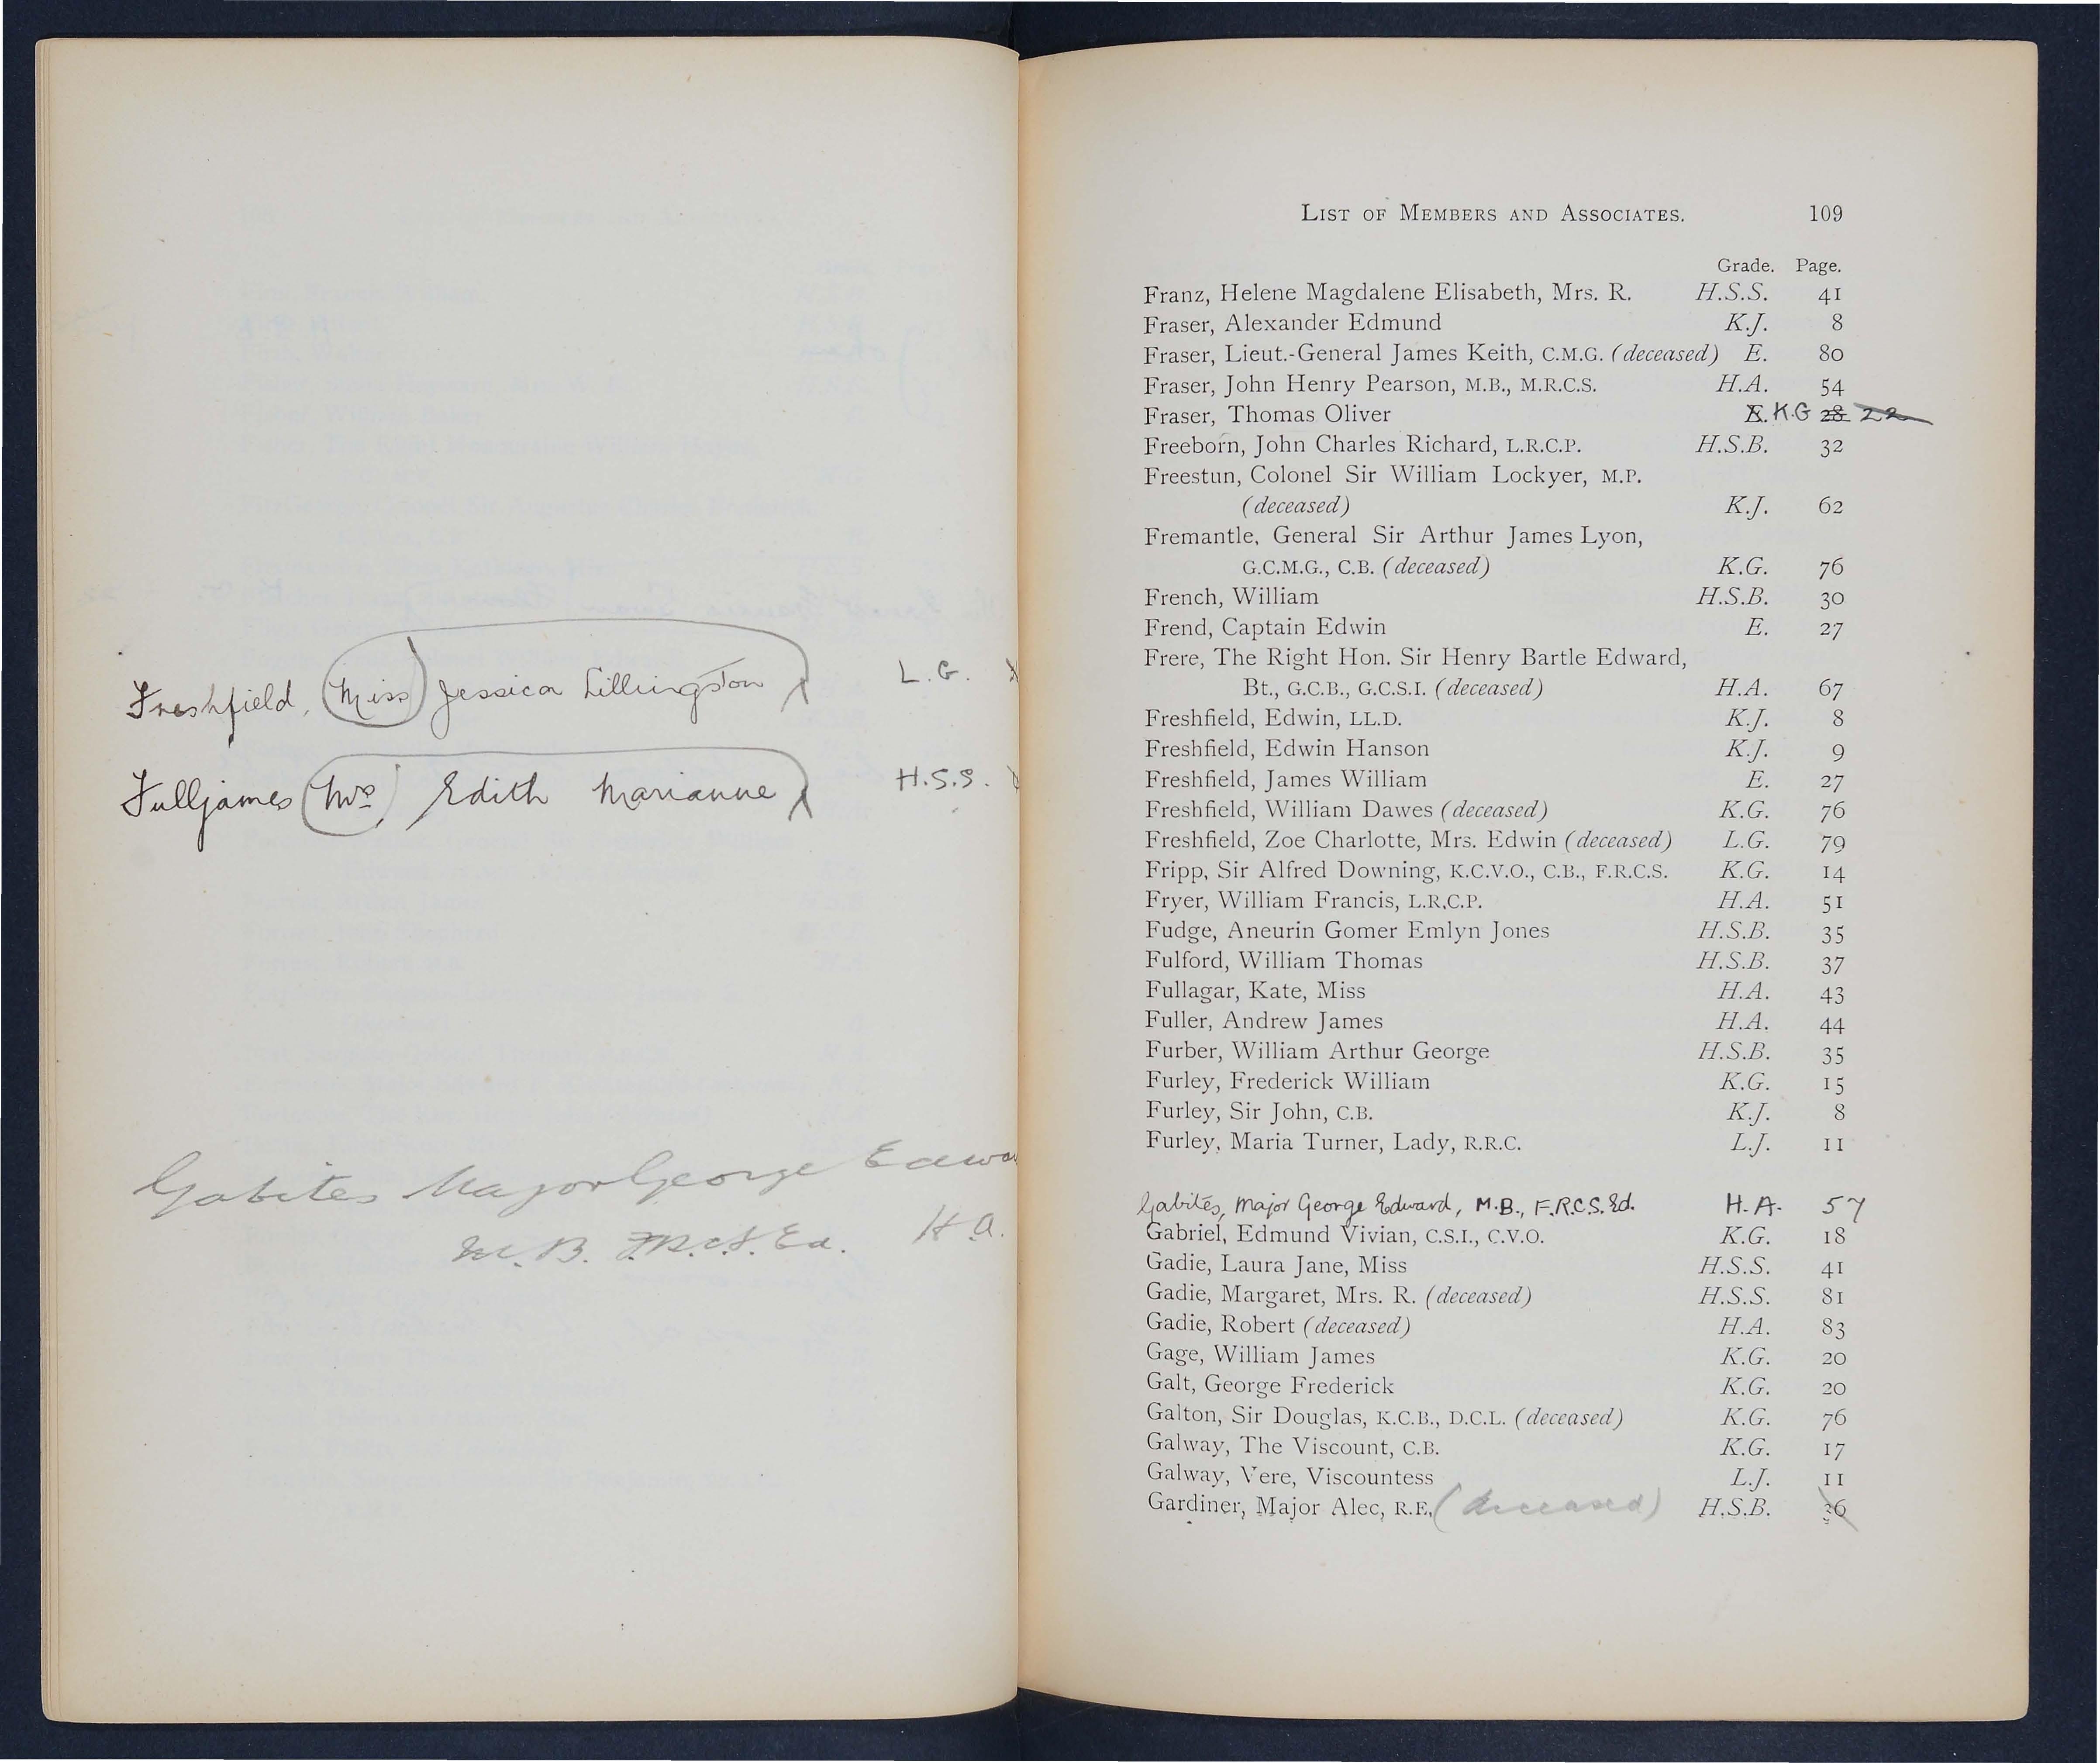 Freshfield, (Miss) Jessica Lillingston L.G.
Fulljames (Mrs) Edith Marianne H.S.S.
Gabites Major George Edwar
M.B. F.R.C.S. Ed. H.A.
LIST OF MEMBERS AND ASSOCIATES. 109
Grade. Page.
Franz, Helene Magdalene Elisabeth, Mrs. R. H.S.S. 41
Fraser, Alexander Edmund K.J. 8
Fraser, Lieut.-General James Keith, C.M.G. (deceased) E. 80
Fraser, John Henry Pearson, M.B., M.R.C.S. H.A. 54
Fraser, Thomas Oliver E. K.G 28 22
Freeborn, John Charles Richard, L.R.C.P. H.S.B. 32
Freestun, Colonel Sir William Lockyer, M.P.
(deceased) K.J. 62
Fremantle, General Sir Arthur James Lyon,
G.C.M.G., C.B. (deceased) K.G. 76
French, William H.S.B. 30
Frend, Captain Edwin E. 27
Frere, The Right Hon. Sir Henry Bartle Edward,
Bt., G.C.B., G.C.S.I. (deceased) H.A. 67
Freshfield, Edwin, LL.D. K.J. 8
Freshfield, Edwin Hanson K.J. 9
Freshfield, James William E. 27
Freshfield, William Dawes (deceased) K.G. 76
Freshfield, Zoe Charlotte, Mrs. Edwin (deceased) L.G. 79
Fripp, Sir Alfred Downing, K.C.V.O., C.B., F.R.C.S. K.G. 14
Fryer, William Francis, L.R.C.P. H.A. 51
Fudge, Aneurin Gomer Emlyn Jones H.S.B. 35
Fulford, William Thomas H.S.B. 37
Fullagar, Kate, Miss H.A. 43
Fuller, Andrew James H.A. 44
Furber, William Arthur George H.S.B. 35
Furley, Frederick William K.G. 15
Furley, Sir John, C.B. K.J. 8
Furley, Maria Turner, Lady, R.R.C. L.J. 11
Gabites, Major George Edward, M.B., F.R.C.S. Ed. H.A. 57
Gabriel, Edmund Vivian, C.S.I., C.V.O. K.G. 18
Gadie, Laura Jane, Miss H.S.S. 41
Gadie, Margaret, Mrs. R. (deceased) H.S.S. 81
Gadie, Robert (deceased) H.A. 83
Gage, William James K.G. 20
Galt, George Frederick K.G. 20
Galton, Sir Douglas, K.C.B., D.C.L. (deceased) K.G. 76
Galway, The Viscount, C.B. K.G. 17
Galway, Vere, Viscountess L.J. 11
Gardiner, Major Alec, R.E. (deceased) H.S.B. 36